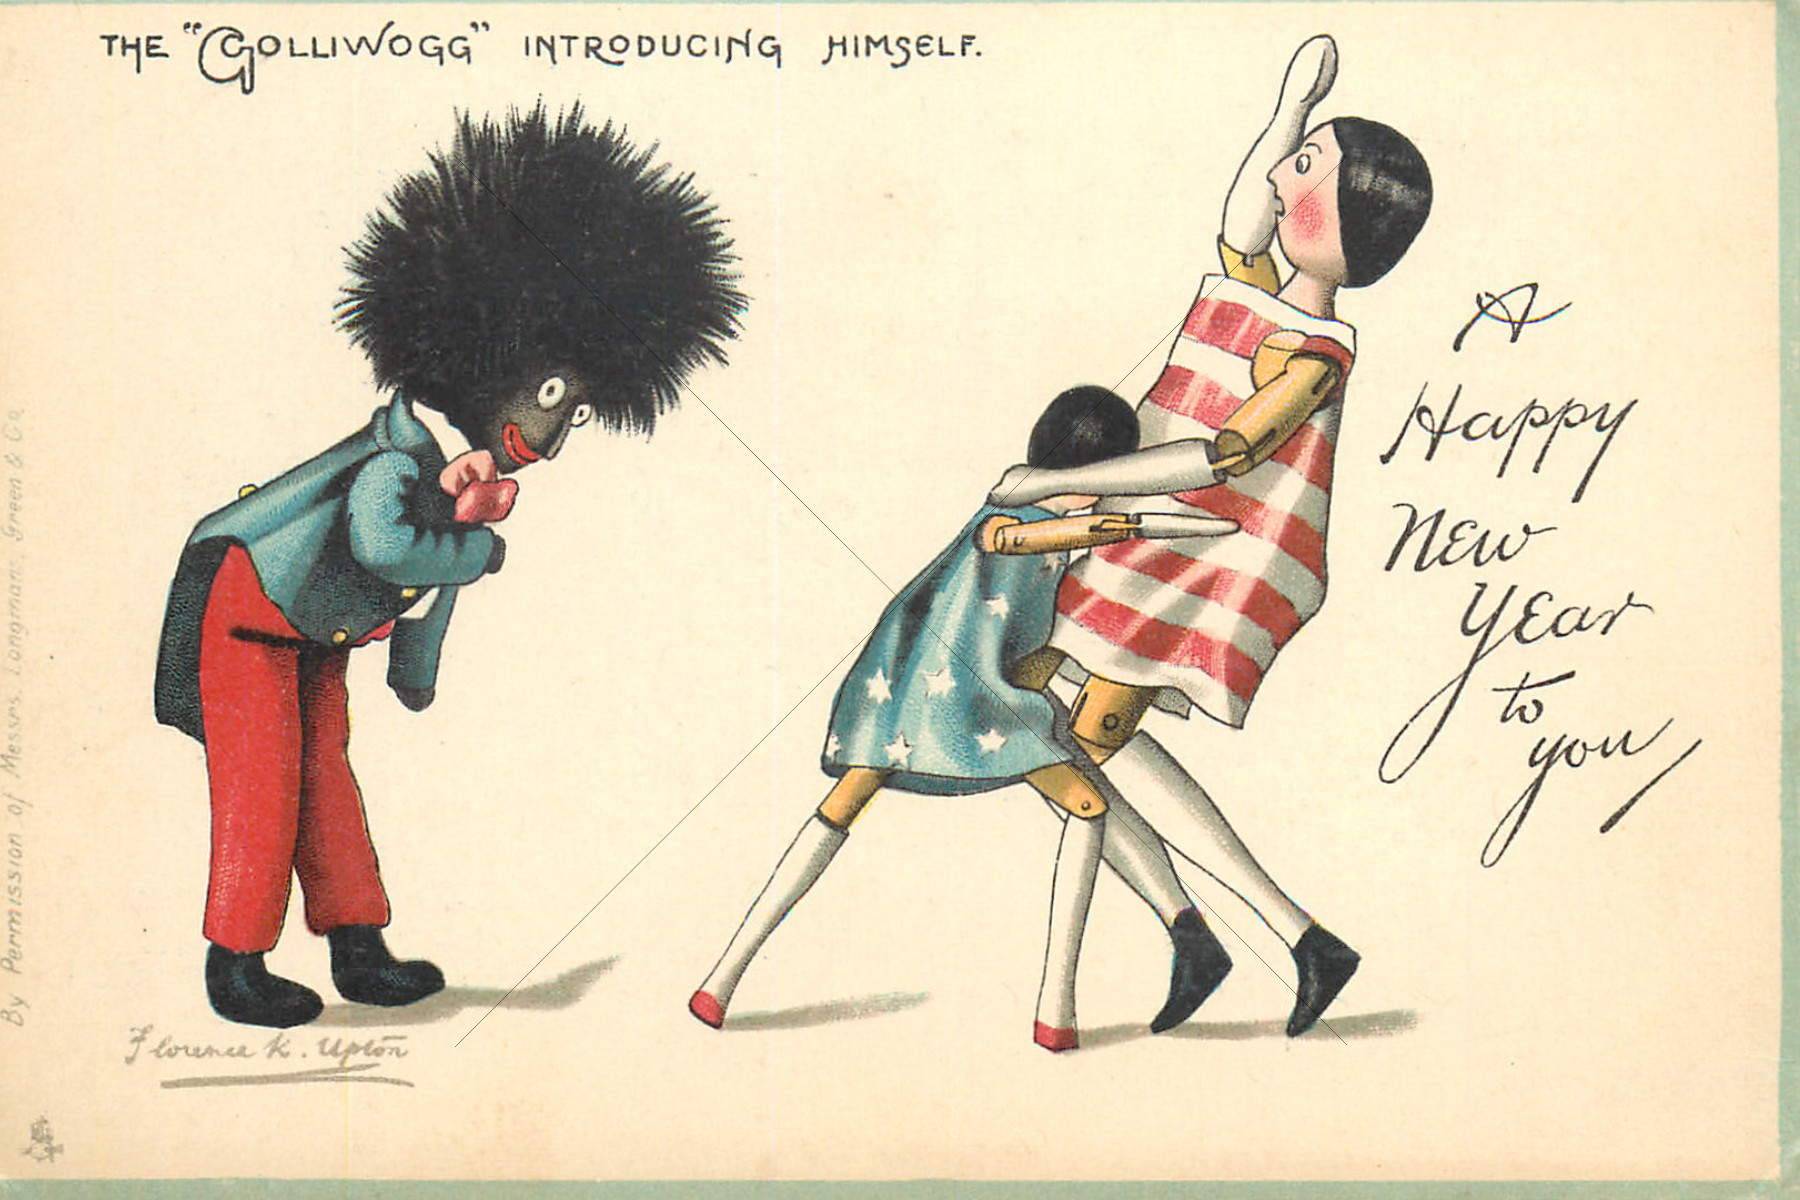 THE "GOLLIWOGG" INTRODUCING HIMSELF.
A
Happy
New
Year
to
you
By Permission of Messrs. Longmans, Green & Co
Florence K. Upton